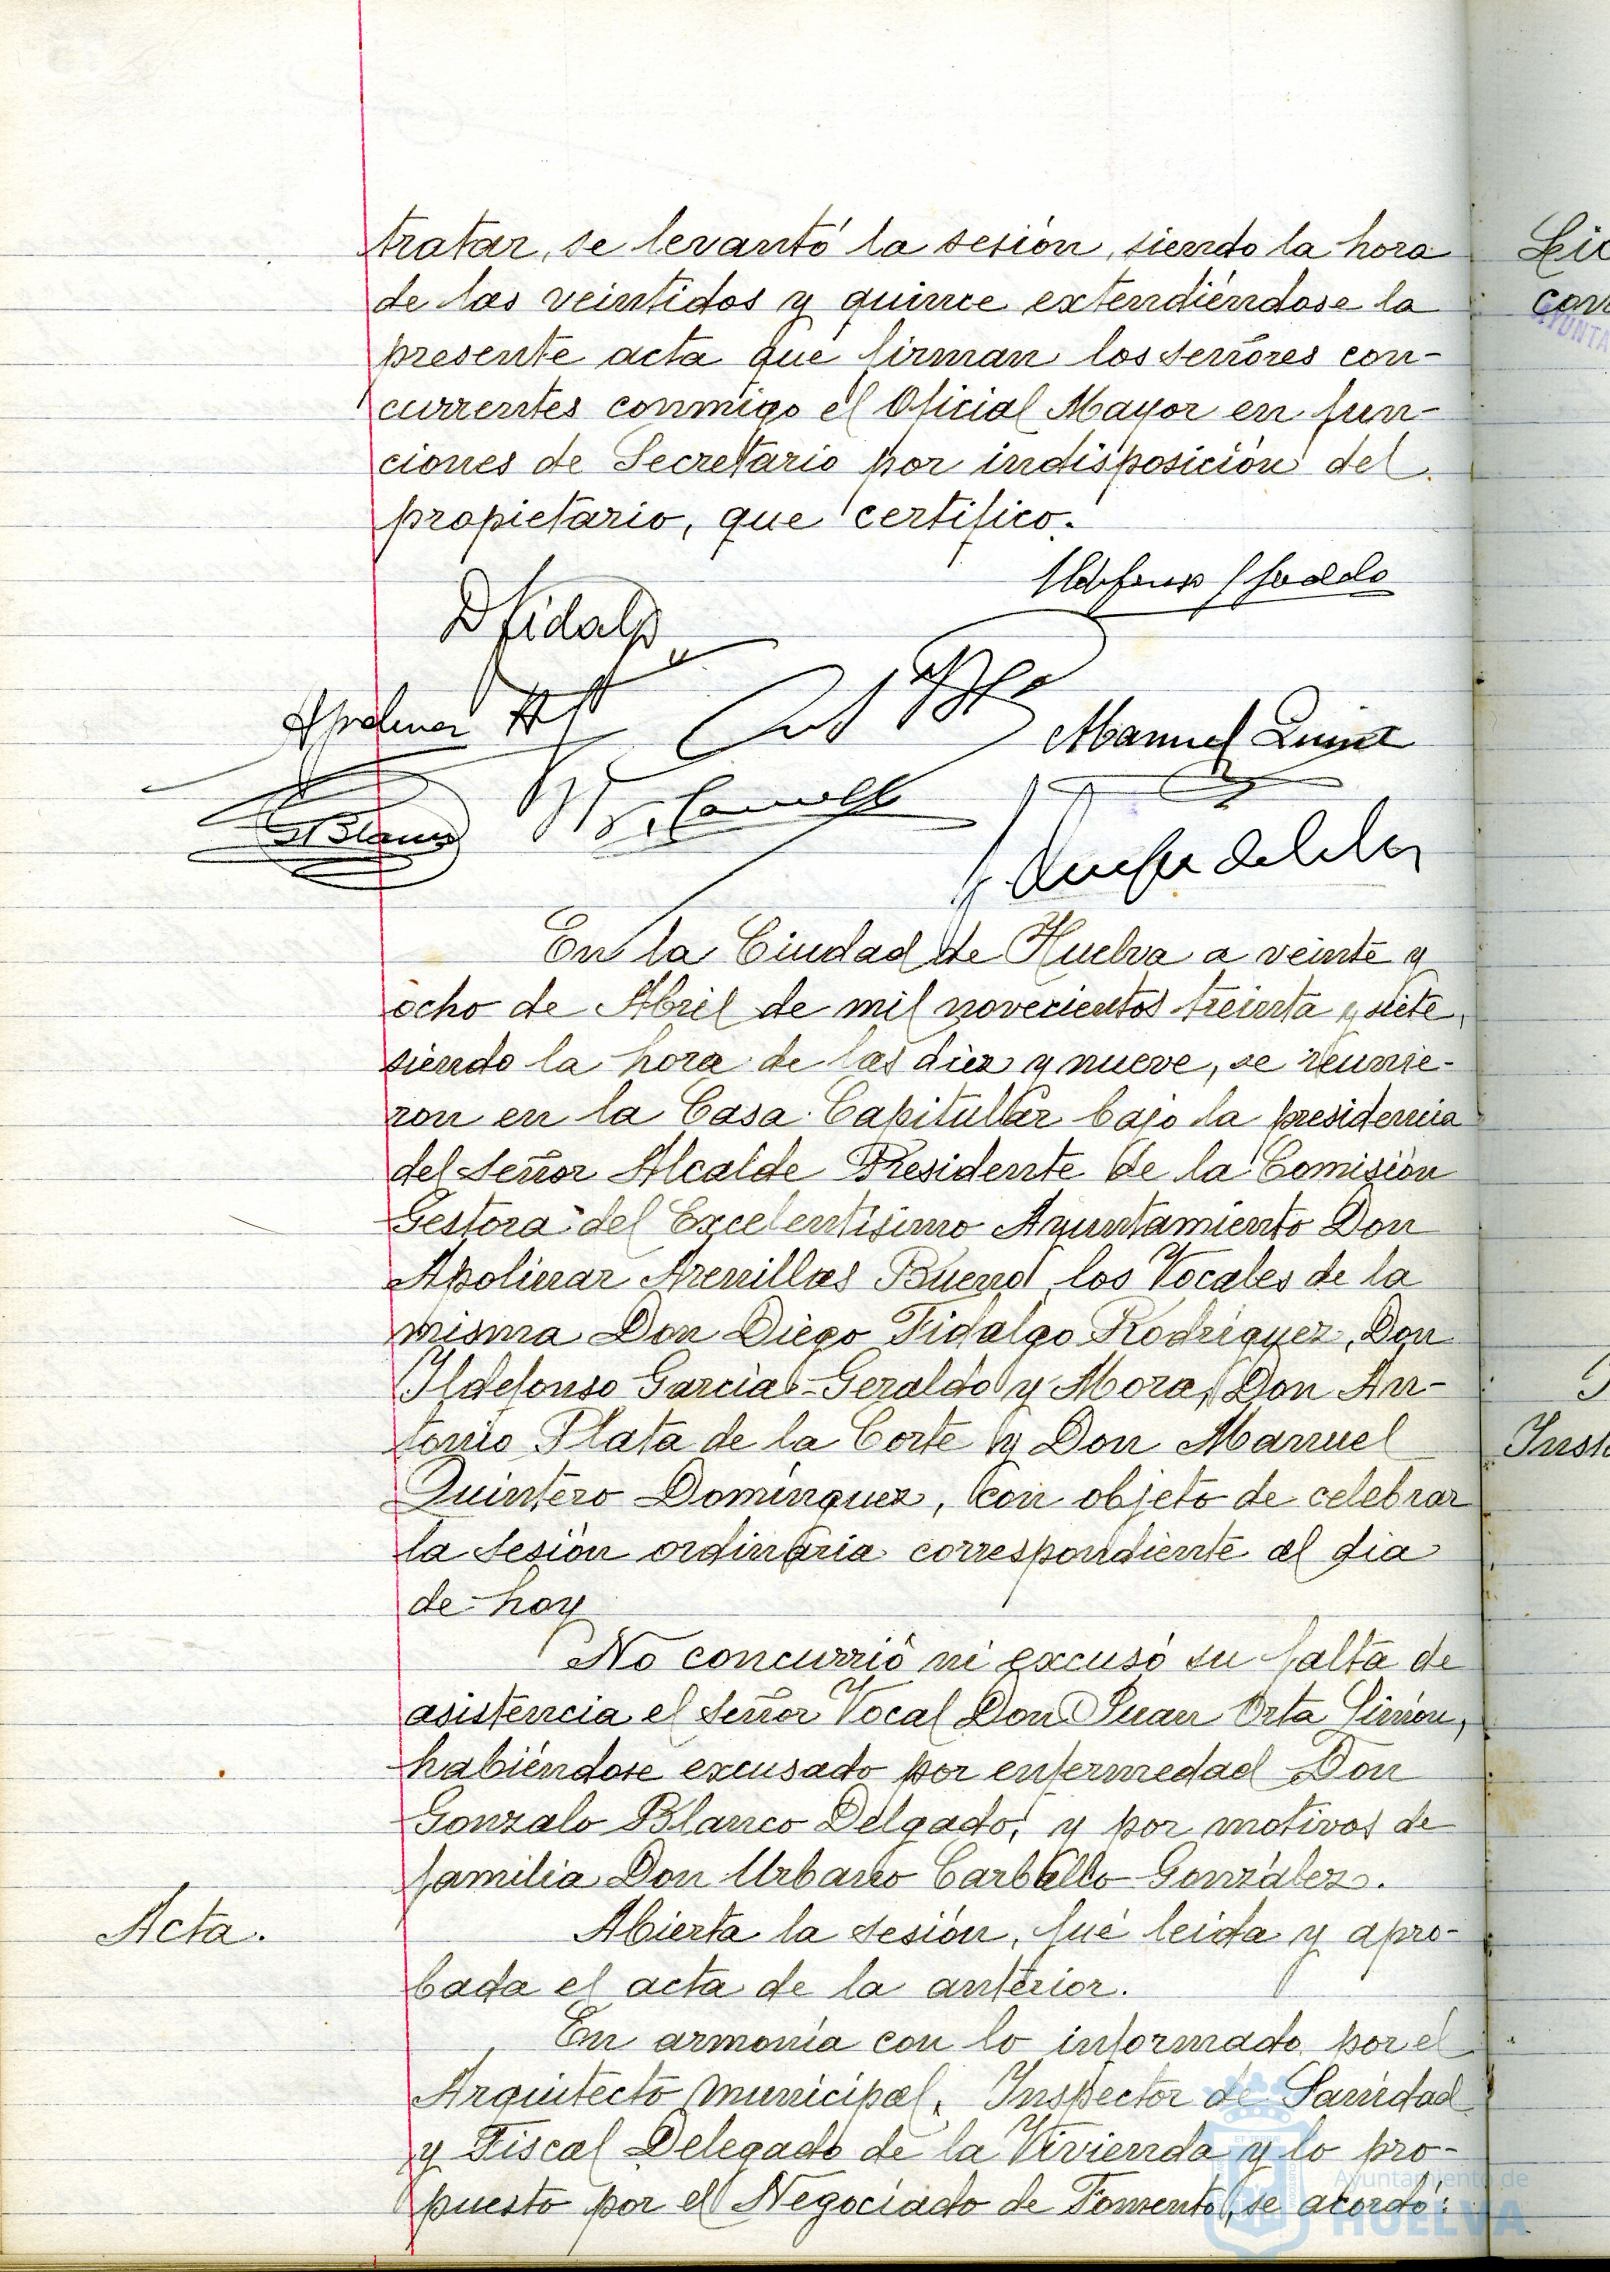 tratar, se levantó la sesión, siendo la hora
de las veintidos y quince extendiéndose la
presente acta que firman los señores con-
currentes conmigo el Oficial Mayor en fun-
ciones de Secretario por indisposición del
propietario, que certifico.
D Fidalgo
Manuel Quint
G Blanco
En la Ciudad de Huelva a veinte y
ocho de Abril de mil novecientos treinta y siete,
siendo la hora de las diez y nueve, se reunie-
ron en la Casa Capitular bajo la presidencia
del Señor Alcalde Presidente de la Comisión
Gestora del Excelentísimo Ayuntamiento Don
Apolinar Arenillas Bueno, los Vocales de la
misma Don Diego Fidalgo Rodríguez, Don
Ildefonso García-Geraldo y Mora, Don An-
tonio Plata de la Corte y Don Manuel
Quintero Domínguez, con objeto de celebrar
la sesión ordinaria correspondiente al dia
de hoy
No concurrió ni excusó su falta de
asistencia el señor Vocal Don Juan Orta Simón,
habiéndose excusado por enfermedad Don
Gonzalo Blanco Delgado, y por motivos de
familia Don Urbano Carballo González.
Acta.
Abierta la sesión, fué leida y apro-
bada el acta de la anterior.
En armonía con lo informado por el
Arquitecto municipal, Inspector de Sanidad
y Fiscal Delegado de la Vivienda y lo pro-
puesto por el Negociado de Fomento, se acordó:
Ayuntamiento de
HUELVA